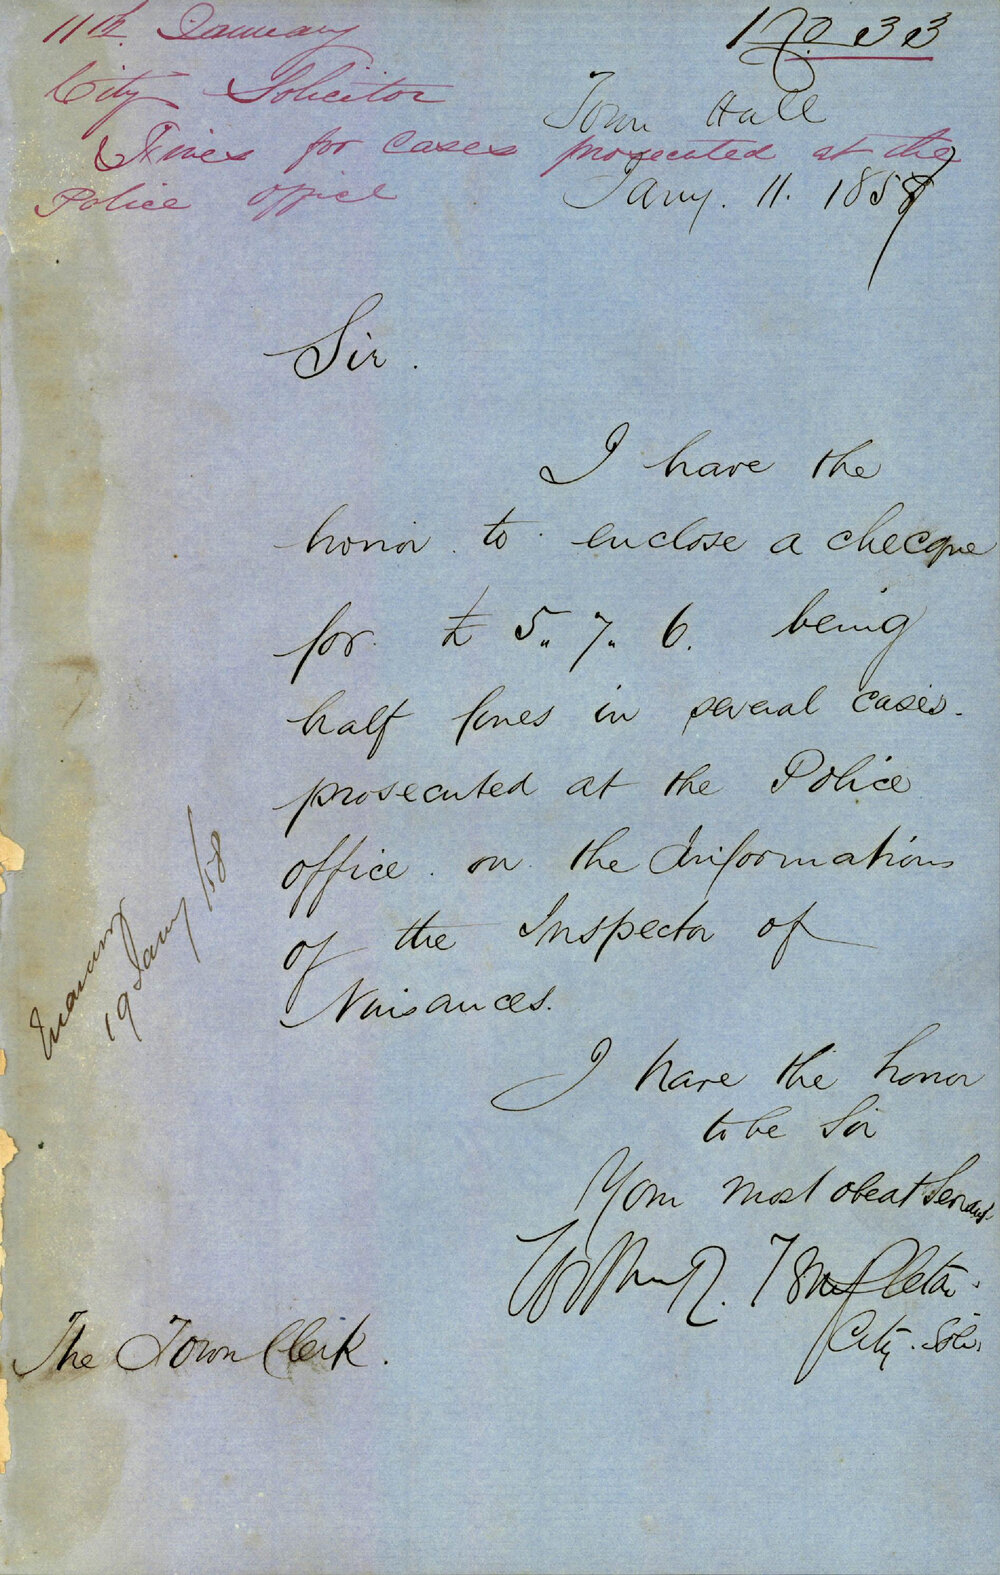 No 33
11th January
City Solicitor
Fines for cases prosecuted at the
Police office
Town Hall
Jany. 11. 1858
Sir.
I have the
honor to enclose a checque
for £ 5.. 7.. 6. being
half fines in several cases.
prosecuted at the Police
office on the Informations
of the Inspector of
Nuisances.
I have the honor
to be Sir
Your most obeat Servant
City. Solr.
The Town Clerk.
19 Jany /58